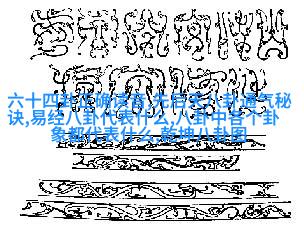 六十四卦正确读音,先后天八卦通气秘
诀,易经八卦代表什么,八卦中各个卦
象都代表什么,乾坤八卦图